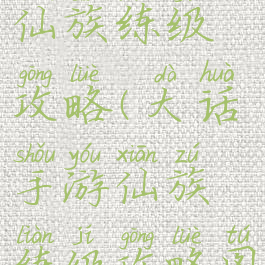 仙族练级
gōng lüè dà huà
攻略(大话
shǒu yóu xiān zú
手游仙族
liàn jí gōng lüè tú
练级攻略图